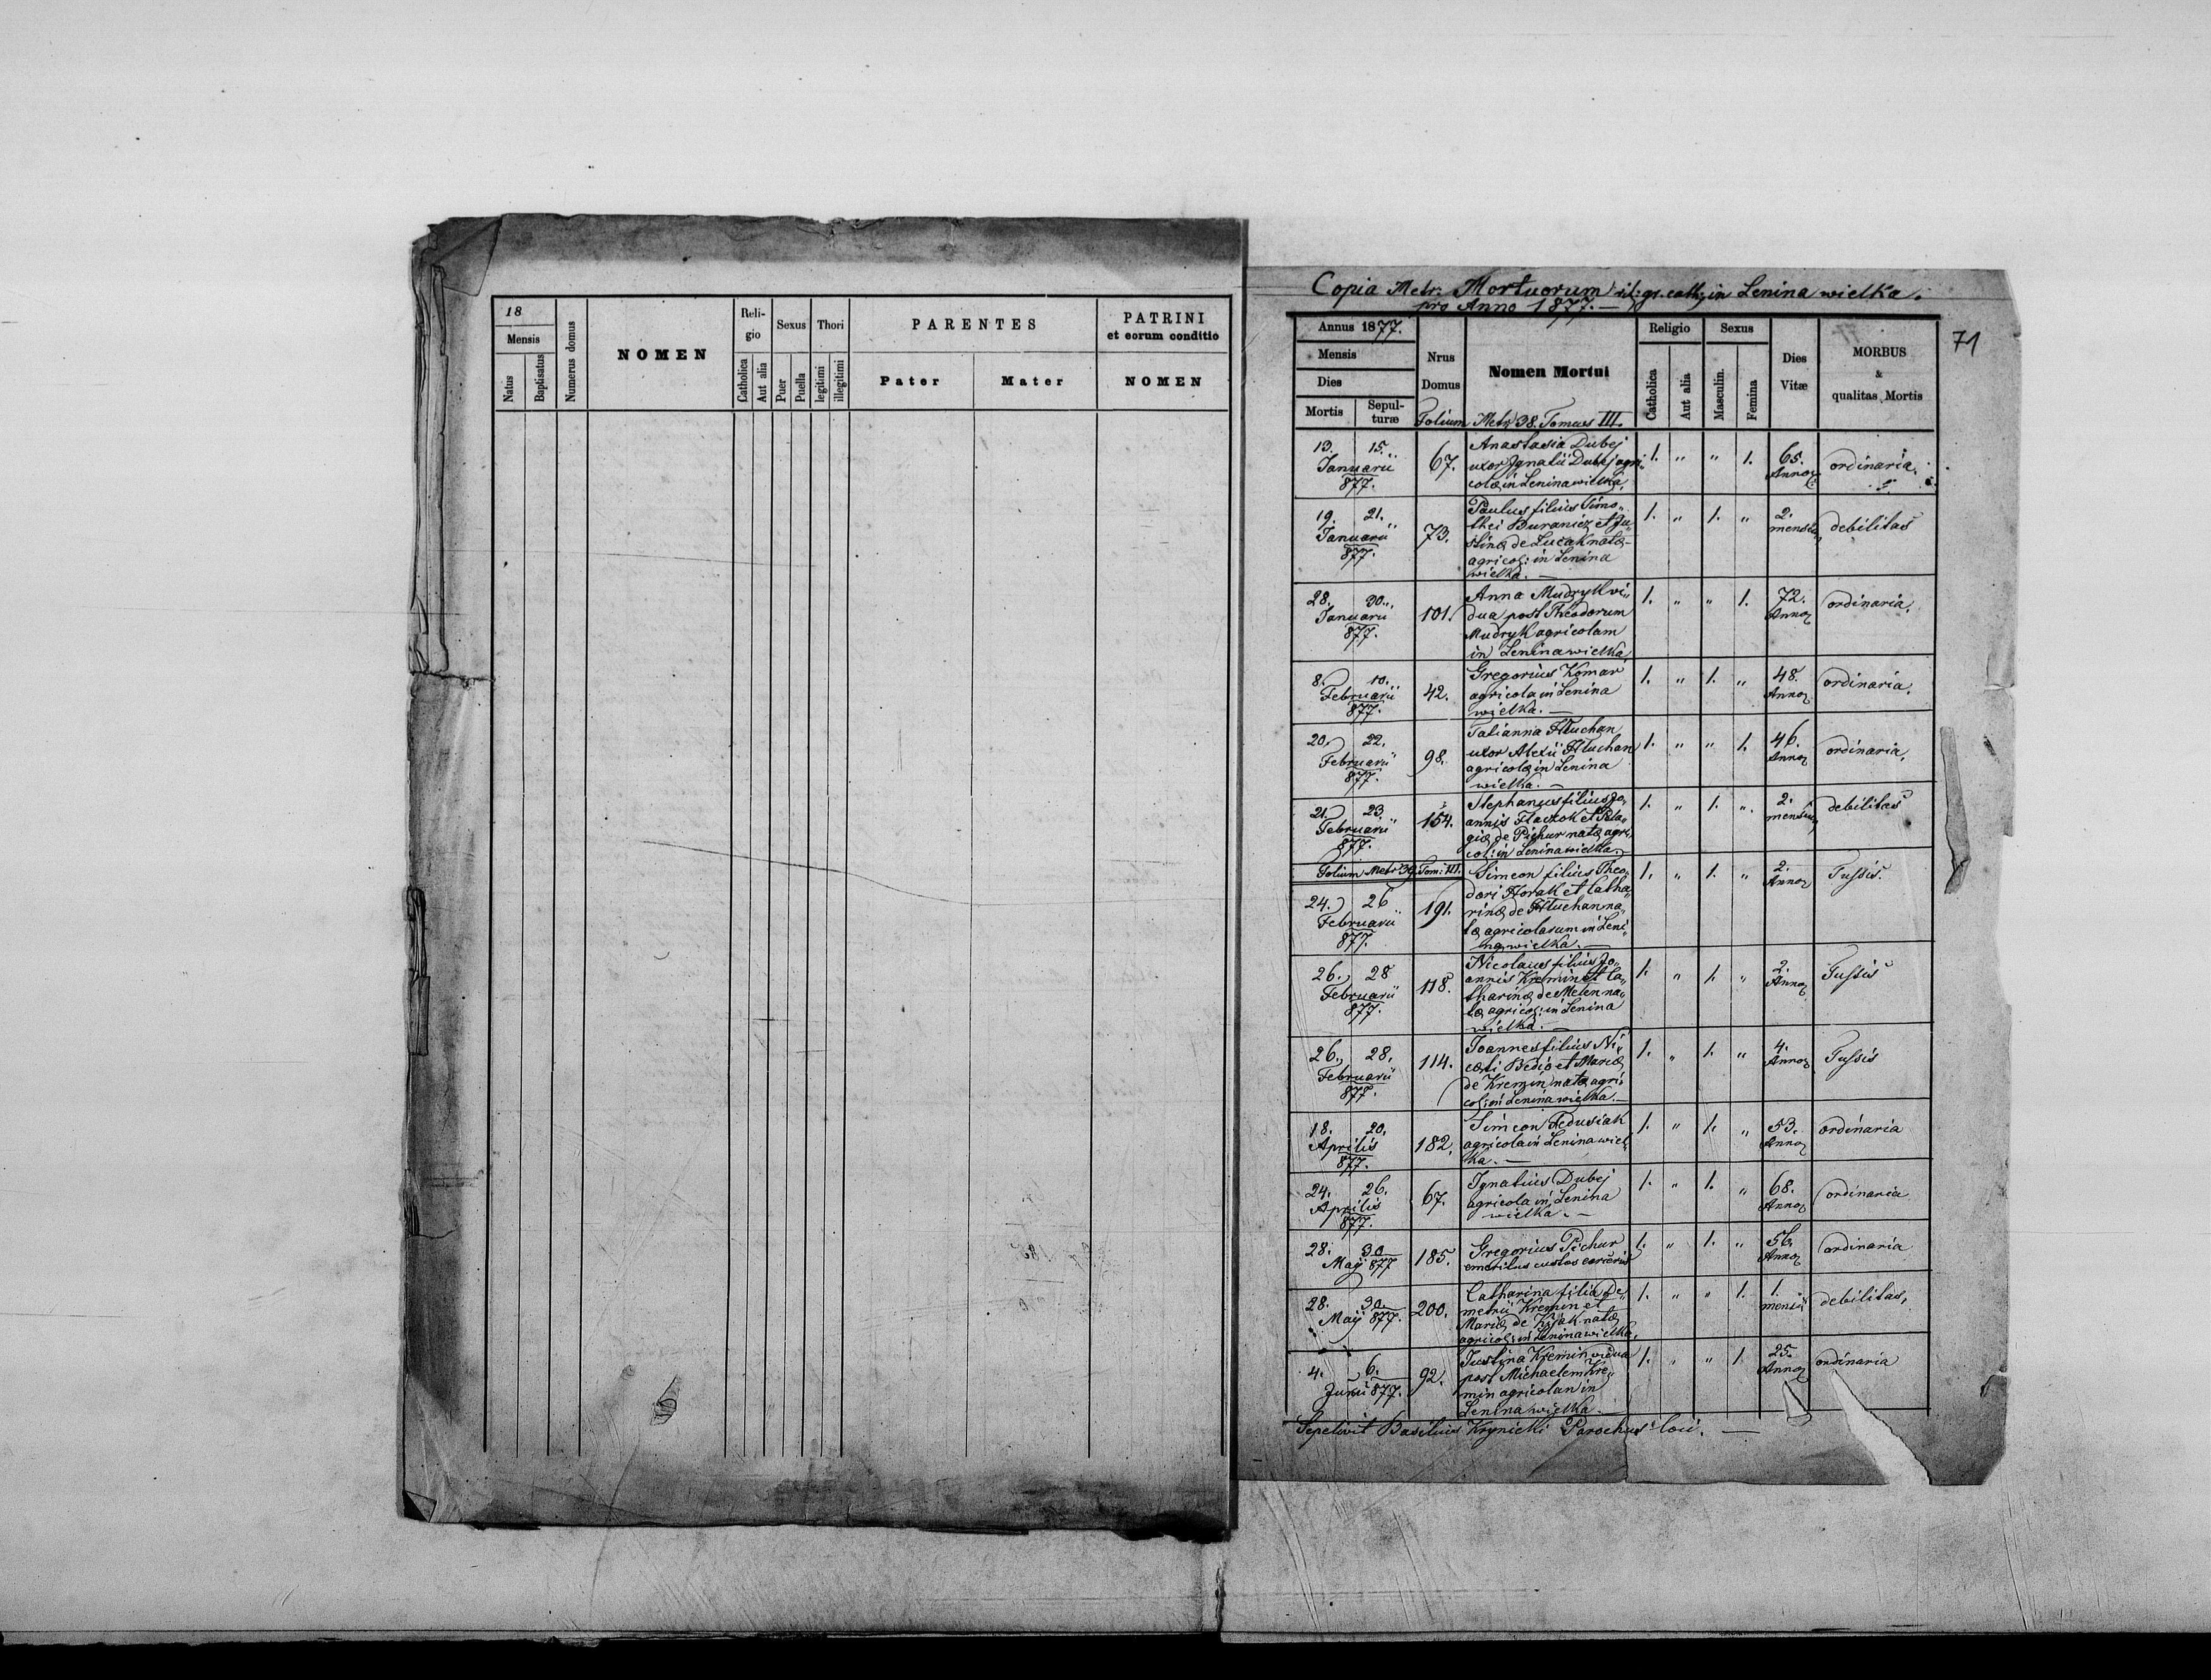 18
Mensis
Natus
Baptisatus
Numerus domus
NOMEN
Reli-
gio
Catholica
Aut alia
Sexus
Puer
Puella
Thori
legitimi
illegitimi
PARENTES
Pater
Mater
PATRINI
et eorum conditio
NOMEN
Copia Metr: Mortuorum rit: gr. cath: in Lenina wielka.
pro Anno 1877. —
71
Annus 1877.
Mensis
Dies
Mortis
Sepul-
turæ
Nrus
Domus
Nomen Mortui
Religio
Catholica
Aut alia
Sexus
Masculin.
Femina
Dies
Vitæ
MORBUS
&
qualitas Mortis
Folium Metr. 38. Tomus III.
13. 15.
Januarii
877.
67.
Anastasia Dubej
uxor Ignatii Dubej agri„
colæ in Lenina wielka,
1. „ „ 1.
65.
Annor
ordinaria.
19. 21.
Januarii
877.
73.
Paulus filius Timo„
thei Buranicz et Ju„
stinæ de Lucak natæ
agricol: in Lenina
wielka. —
1. „ 1. „
2.
mensium
debilitas
28. 30.
Januarii
877.
101.
Anna Mudryk vi„
dua post Theodorum
Mudryk agricolam
in Lenina wielka
1. „ „ 1.
72.
Annor
ordinaria.
8. 10.
Februarii
877.
42.
Gregorius Komar
agricola in Lenina
wielka. —
1. „ 1. „
48.
Annor
ordinaria.
20. 22.
Februarii
877.
98.
Tatianna Hluchan
uxor Alexii Hluchan
agricolæ in Lenina
wielka. —
1. „ „ 1.
46.
Annor
ordinaria,
21. 23.
Februarii
877.
154.
Stephanus filius Jo„
annis Haczok et Pela„
giæ de Pichur natæ agri„
col: in Lenina wielka. —
1. „ 1. „
2.
mensium
debilitas
Folium Metr 39. Tom: III.
24. 26
Februarii
877.
191.
Simeon filius Theo„
dori Horak et Catha„
rinæ de Hluchan na„
tæ agricolarum in Leni„
na wielka. —
1. „ 1. „
2.
Annor
Tussis.
26. 28
Februarii
877.
118.
Nicolaus filius Jo„
annis Kremin et Ca„
tharinæ de Melen na„
tæ agricol: in Lenina
wielka. —
1. „ 1. „
2.
Annor
Tussis
26. 28.
Februarii
877.
114.
Joannes filius Ni„
de Kremin natæ agri„
col: in Lenina wielka. —
1. „ 1. „
4.
Annor
Tussis
18. 20.
Aprilis
877.
182.
Simeon Fedusiak
agricola in Lenina wiel„
ka. —
1. „ 1. „
53.
Annor
ordinaria
24. 26.
Aprilis
877.
67.
Ignatius Dubej
agricola in Lenina
wielka. —
1. „ 1. „
68.
Annor
ordinaria
28. 30
Maji 877
185.
Gregorius Pichur
emeritus custos carceris
1. „ 1. „
56.
Annor
ordinaria
28. 30.
Maji 877.
200.
Catharina filia De„
metrii Kremin et
Mariæ de Kijak natæ
agricol: in Lenina wielka.
1. „ „ 1.
1.
mensis
debilitas,
4. 6.
Junii 877.
92.
Justina Kremin vidua
post Michaelem Kre„
min agricolam in
Lenina wielka.
1. „ „ 1
25.
Annor
ordinaria
Sepelivit Basilius Krynicki Parochus loci. —